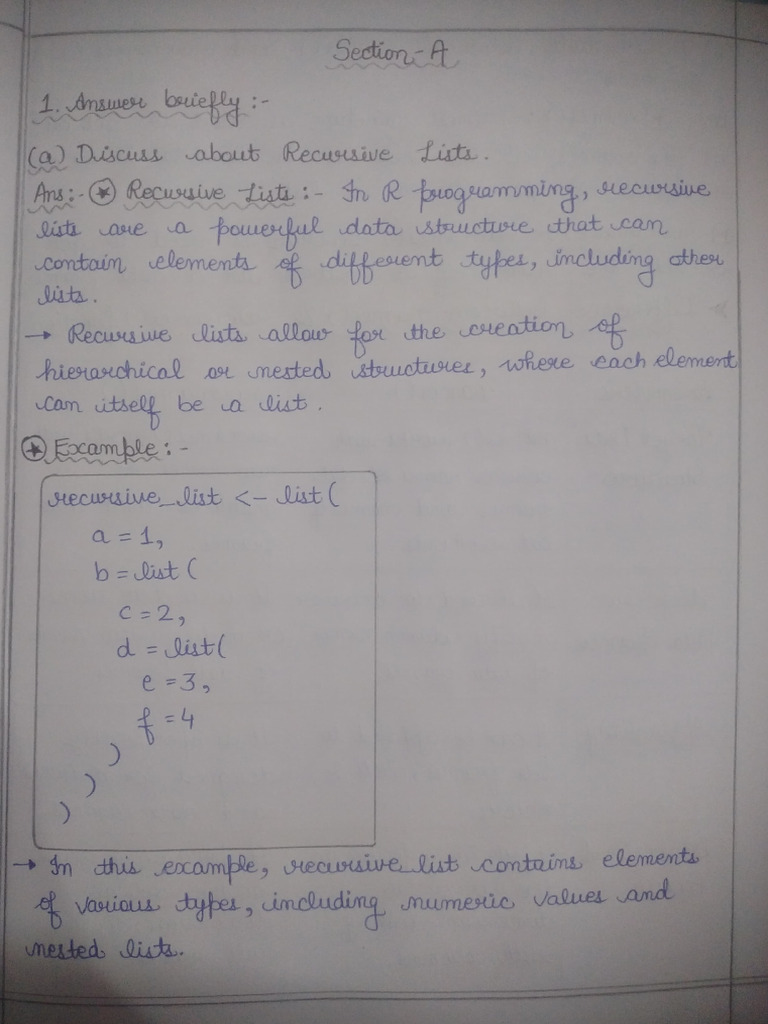 Section-A
1. Answer briefly :-
(a) Discuss about Recursive Lists.
Ans:- ★ Recursive Lists :- In R programming, recursive
lists are a powerful data structure that can
contain elements of different types, including other
lists.
→ Recursive lists allow for the creation of
hierarchical or nested structures, where each element
can itself be a list.
★ Example :-
recursive_list <- list(
a = 1,
b = list (
c = 2,
d = list(
e = 3,
f = 4
)
)
)
→ In this example, recursive_list contains elements
of various types, including numeric values and
nested lists.